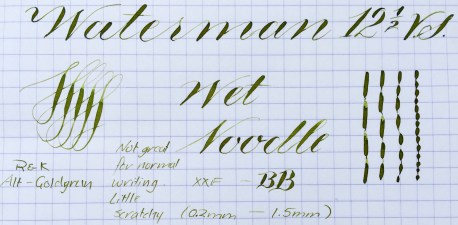 Waterman 12½ V.S.
Wet
Noodle
R&K
Alt-Goldgrun
Not great
for normal
writing.
Little
scratchy
XXF - BB
(0.2mm — 1.5mm)